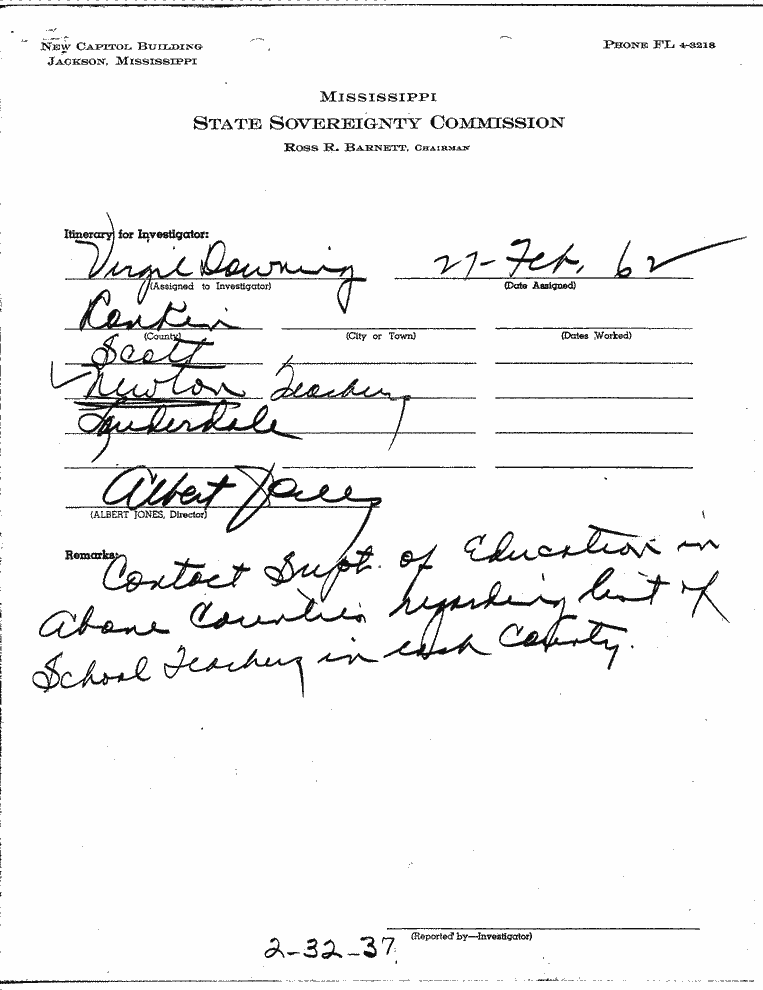 NEW CAPITOL BUILDING
JACKSON, MISSISSIPPI
PHONE FL 4-3218
MISSISSIPPI
STATE SOVEREIGNTY COMMISSION
ROSS R. BARNETT, CHAIRMAN
Itinerary for Investigator:
Virgil Downing 27-Feb, 62
(Assigned to Investigator) (Date Assigned)
Rankin
(County) (City or Town) (Dates Worked)
Scott
Newton Teachers
Lauderdale
Albert Jones
(ALBERT JONES, Director)
Remarks:
Contact Supt. of Education in
above Counties regarding list of
School Teachers in each County.
(Reported by—Investigator)
2-32-37